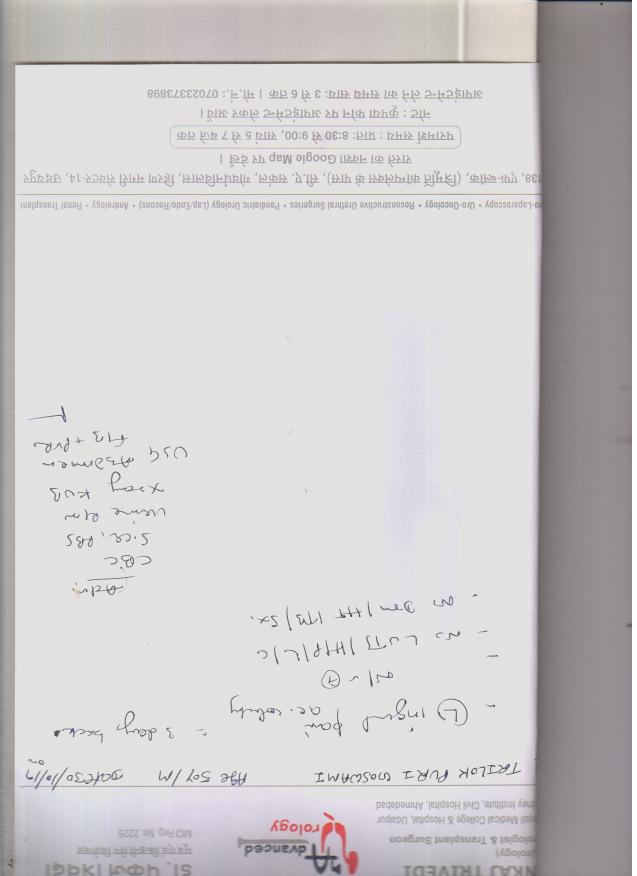 डॉ. पंकज त्रिवेदी
NKAJ TRIVEDI
Urology)
MCI Reg. No. 2226
ologist & Transplant Surgeon
Medical College & Hospital, Udaipur
ney Institute, Civil Hospital, Ahmedabad
Advanced
Urology
TRILOK PURI GOSWAMI Age 50Y/M Date 30/10/17
on
- (L) inguinal pain - 3 days back
ac. colicky
N/V (+)
- No LUTS/H/P/L/C
- No DM/HT/TB/Sx.
Adv.
CBC
S.Cr, RBS
Urine R/M
Xray KUB
USG Abdomen
+ PVR
ro-Laparoscopy • Uro-Oncology • Reconstructive Urethral Surgeries • Paediatric Urology (Lap/Endo/Recons) • Andrology • Renal Transplant
138, एफ-ब्लॉक, (त्रिमूर्ति कॉम्पलेक्स के पास), सी.ए. सर्कल, गोवर्धनविलास, हिरण मगरी सेक्टर-14, उदयपुर
रास्ते का नक्शा Google Map पर देखें ।
परामर्श समय : प्रातः 8:30 से 9:00, सायं 5 से 7 बजे तक
नोट : कृपया फोन पर अपाइंटमेन्ट लेकर आवें ।
अपाइंटमेन्ट लेने का समय सायः 3 से 6 तक । मो.नं.: 07023373898